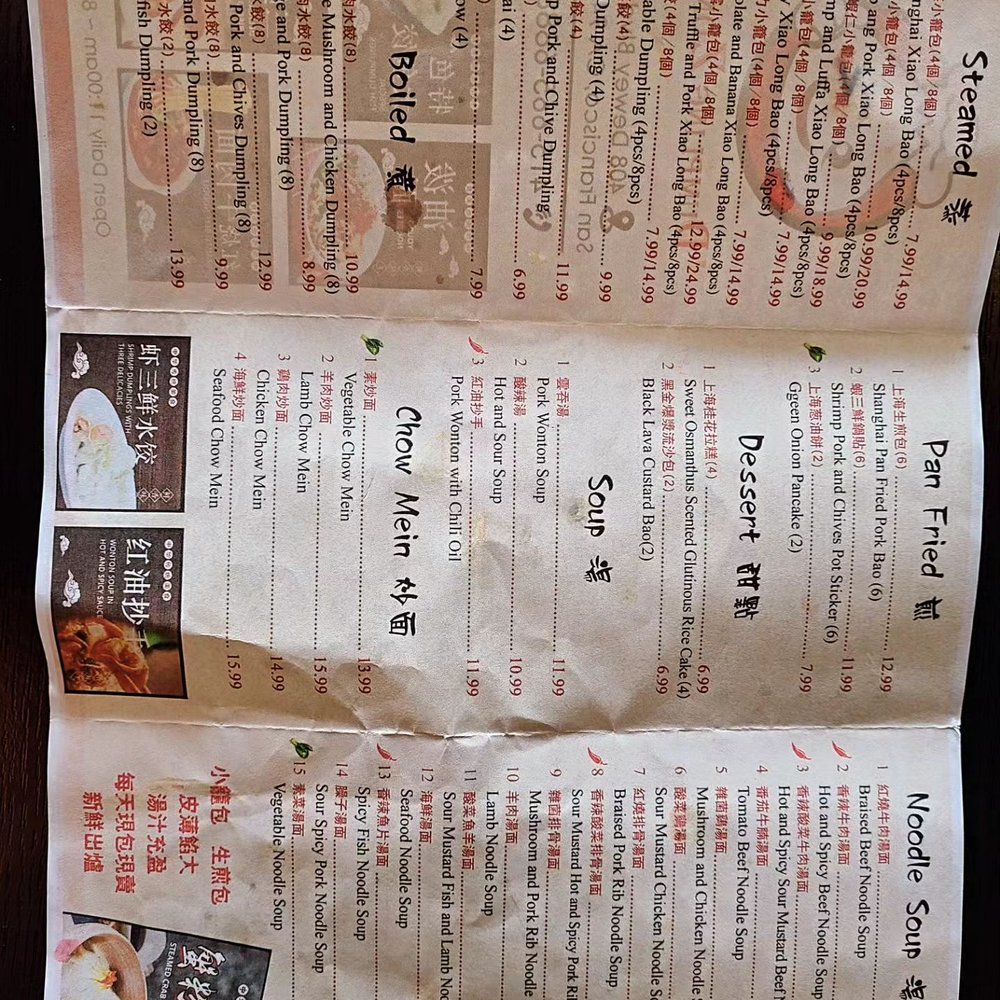 Steamed 蒸
小籠包(4個/8個)
nghai Xiao Long Bao (4pcs/8pcs)
7.99/14.99
小籠包(4個/8個)
p ang Pork Xiao Long Bao (4pcs/8pcs)
10.99/20.99
蝦仁小籠包(4個/8個)
mp and Luffa Xiao Long Bao (4pcs/8pcs)
9.99/18.99
小籠包(4個/8個)
y Xiao Long Bao (4pcs/8pcs)
7.99/14.99
力小籠包(4個/8個)
olate and Banana Xiao Long Bao (4pcs/8pcs)
7.99/14.99
小籠包(4個/8個)
Truffle and Pork Xiao Long Bao (4pcs/8pcs)
12.99/24.99
餃(4個/8個)
able Dumpling (4pcs/8pcs)
7.99/14.99
餃(4)
Dumpling (4)
9.99
餃(4)
p Pork and Chive Dumpling
11.99
ai (4)
6.99
ow (4)
7.99
Boiled 煮
肉水餃(8)
e Mushroom and Chicken Dumpling (8)
10.99
肉水餃(8)
ge and Pork Dumpling (8)
8.99
水餃(8)
Pork and Chives Dumpling (8)
12.99
肉水餃(8)
and Pork Dumpling (8)
9.99
水餃(2)
fish Dumpling (2)
13.99
Pan Fried 煎
1 上海生煎包(6)
Shanghai Pan Fried Pork Bao (6)
12.99
2 蝦三鮮鍋貼(6)
Shrimp Pork and Chives Pot Sticker (6)
11.99
3 上海葱油餅(2)
Ggeen Onion Pancake (2)
7.99
Dessert 甜點
1 上海桂花拉糕(4)
Sweet Osmanthus Scented Glutinous Rice Cake (4)
6.99
2 黑金爆漿流沙包(2)
Black Lava Custard Bao(2)
6.99
Soup 湯
1 雲吞湯
Pork Wonton Soup
11.99
2 酸辣湯
Hot and Sour Soup
10.99
3 紅油抄手
Pork Wonton with Chili Oil
11.99
Chow Mein 炒面
1 素炒面
Vegetable Chow Mein
13.99
2 羊肉炒面
Lamb Chow Mein
15.99
3 鷄肉炒面
Chicken Chow Mein
14.99
4 海鮮炒面
Seafood Chow Mein
15.99
虾三鲜水饺
SHRIMP DUMPLINGS WITH
THREE DELICACIES
红油抄手
WONTON SOUP IN
HOT AND SPICY SAUC
Noodle Soup 湯
1 紅燒牛肉湯面
Braised Beef Noodle Soup
2 香辣牛肉湯面
Hot and Spicy Beef Noodle Soup
3 香辣酸菜牛肉湯面
Hot and Spicy Sour Mustard Beef N
4 番茄牛腩湯面
Tomato Beef Noodle Soup
5 雜菌鷄湯面
Mushroom and Chicken Noodle S
6 酸菜鷄湯面
Sour Mustard Chicken Noodle S
7 紅燒排骨湯面
Braised Pork Rib Noodle Soup
8 香辣酸菜排骨湯面
Sour Mustard Hot and Spicy Pork Rib
9 雜菌排骨湯面
Mushroom and Pork Rib Noodle
10 羊肉湯面
Lamb Noodle Soup
11 酸菜魚羊湯面
Sour Mustard Fish and Lamb Noo
12 海鮮湯面
Seafood Noodle Soup
13 香辣魚片湯面
Spicy Fish Noodle Soup
14 臊子湯面
Sour Spicy Pork Noodle Soup
15 素菜湯面
Vegetable Noodle Soup
小籠包 生煎包
皮薄餡大
湯汁充盈
每天現包現賣
新鮮出爐
STEAMED CRAB